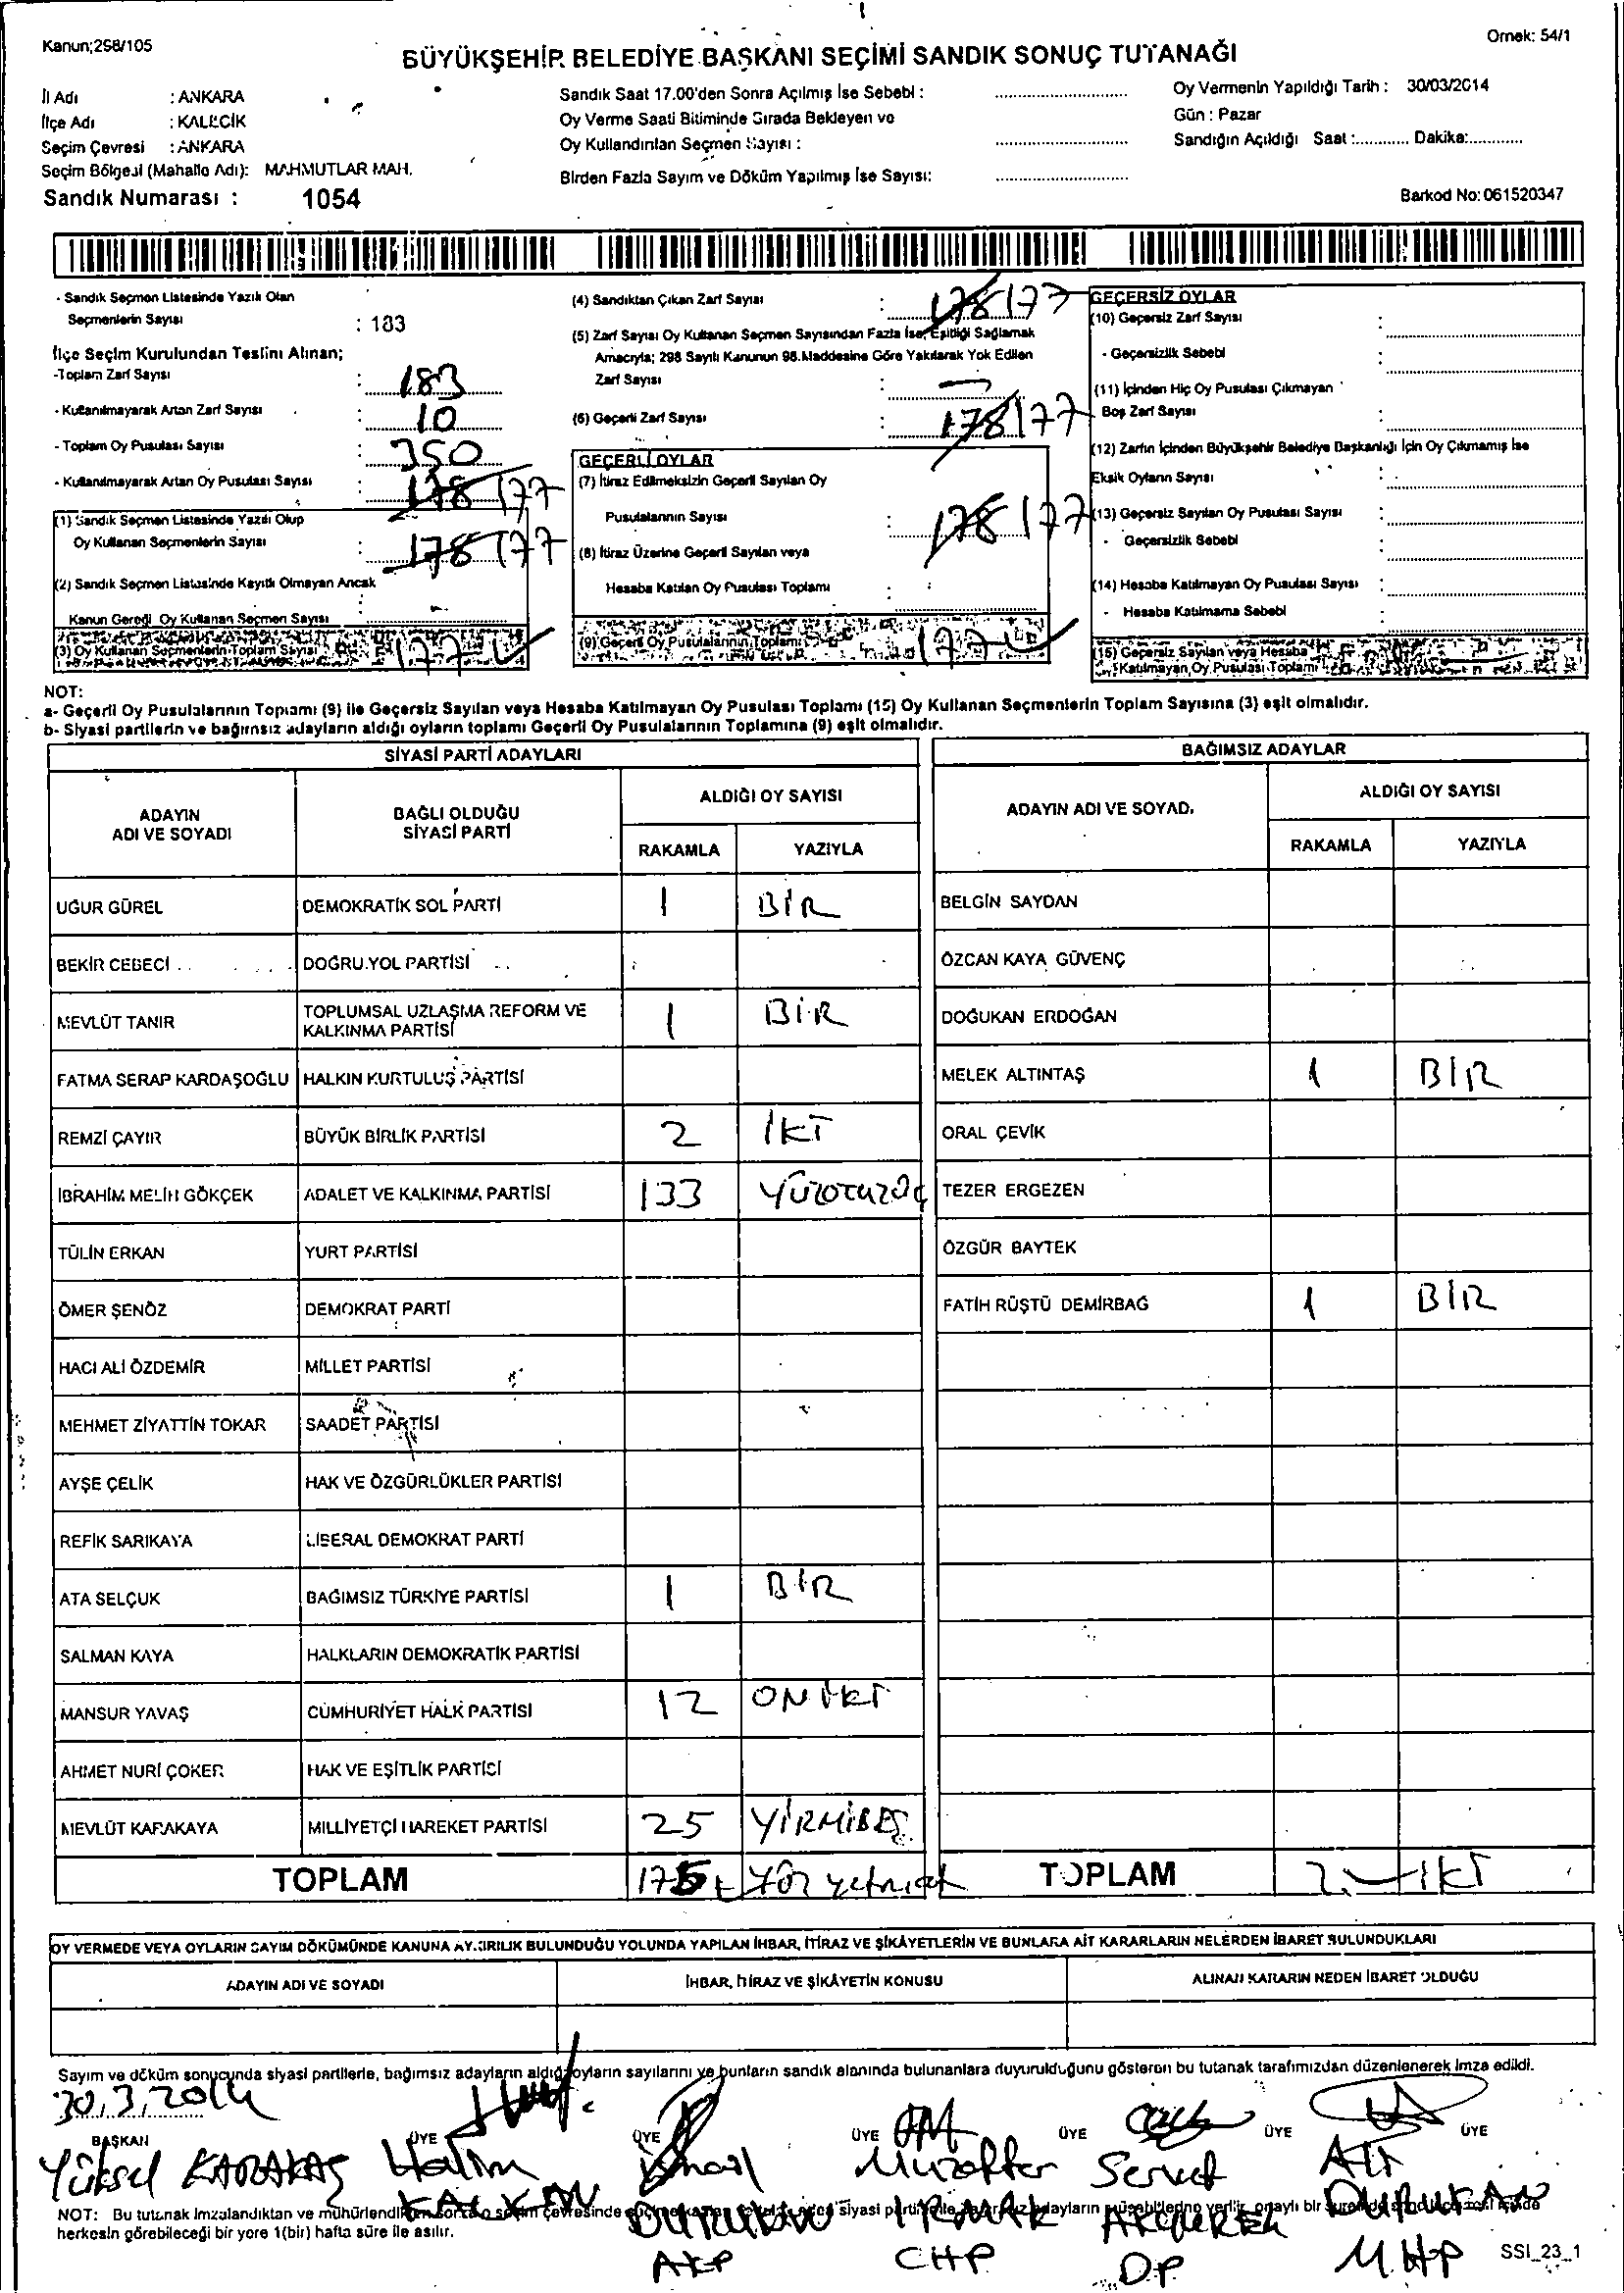 Kanun;298/105
Örnek: 54/1
BÜYÜKŞEHİR BELEDİYE BAŞKANI SEÇİMİ SANDIK SONUÇ TUTANAĞI
İl Adı : ANKARA
İlçe Adı : KALECİK
Seçim Çevresi : ANKARA
Seçim Bölgesi (Mahalle Adı): MAHMUTLAR MAH.
Sandık Numarası : 1054
Sandık Saat 17.00'den Sonra Açılmış İse Sebebi :
Oy Verme Saati Bitiminde Sırada Bekleyen ve
Oy Kullandırılan Seçmen Sayısı :
Birden Fazla Sayım ve Döküm Yapılmış İse Sayısı:
Oy Vermenin Yapıldığı Tarih : 30/03/2014
Gün : Pazar
Sandığın Açıldığı Saat :............ Dakika:............
Barkod No: 061520347
- Sandık Seçmen Listesinde Yazılı Olan
Seçmenlerin Sayısı : 183
İlçe Seçim Kurulundan Teslim Alınan;
-Toplam Zarf Sayısı : 183
- Kullanılmayarak Artan Zarf Sayısı : 10
- Toplam Oy Pusulası Sayısı : 350
- Kullanılmayarak Artan Oy Pusulası Sayısı : 178 177
(1) Sandık Seçmen Listesinde Yazılı Olup
Oy Kullanan Seçmenlerin Sayısı : 178 177
(2) Sandık Seçmen Listesinde Kayıtlı Olmayan Ancak
Kanun Gereği Oy Kullanan Seçmen Sayısı : -
(3) Oy Kullanan Seçmenlerin Toplam Sayısı 177
(4) Sandıktan Çıkan Zarf Sayısı : 178 177
(5) Zarf Sayısı Oy Kullanan Seçmen Sayısından Fazla İse, Eşitliği Sağlamak
Amacıyla; 298 Sayılı Kanunun 98.Maddesine Göre Yakılarak Yok Edilen
Zarf Sayısı : -
(6) Geçerli Zarf Sayısı : 178 177
GEÇERLİ OYLAR
(7) İtiraz Edilmeksizin Geçerli Sayılan Oy
Pusulalarının Sayısı : 178 177
(8) İtiraz Üzerine Geçerli Sayılan veya
Hesaba Katılan Oy Pusulası Toplamı :
(9) Geçerli Oy Pusulalarının Toplamı 177
GEÇERSİZ OYLAR
(10) Geçersiz Zarf Sayısı :
- Geçersizlik Sebebi :
(11) İçinden Hiç Oy Pusulası Çıkmayan
Boş Zarf Sayısı :
(12) Zarfın İçinden Büyükşehir Belediye Başkanlığı İçin Oy Çıkmamış İse
Eksik Oyların Sayısı :
(13) Geçersiz Sayılan Oy Pusulası Sayısı :
- Geçersizlik Sebebi :
(14) Hesaba Katılmayan Oy Pusulası Sayısı :
- Hesaba Katılmama Sebebi :
(15) Geçersiz Sayılan veya Hesaba
Katılmayan Oy Pusulası Toplamı
NOT:
a- Geçerli Oy Pusulalarının Toplamı (9) ile Geçersiz Sayılan veya Hesaba Katılmayan Oy Pusulası Toplamı (15) Oy Kullanan Seçmenlerin Toplam Sayısına (3) eşit olmalıdır.
b- Siyasi partilerin ve bağımsız adayların aldığı oyların toplamı Geçerli Oy Pusulalarının Toplamına (9) eşit olmalıdır.
SİYASİ PARTİ ADAYLARI
ADAYIN ADI VE SOYADI
BAĞLI OLDUĞU SİYASİ PARTİ
ALDIĞI OY SAYISI
RAKAMLA YAZIYLA
UĞUR GÜREL DEMOKRATİK SOL PARTİ 1 BİR
BEKİR CEBECİ DOĞRU YOL PARTİSİ
MEVLÜT TANIR TOPLUMSAL UZLAŞMA REFORM VE KALKINMA PARTİSİ 1 BİR
FATMA SERAP KARDAŞOĞLU HALKIN KURTULUŞ PARTİSİ
REMZİ ÇAYIR BÜYÜK BİRLİK PARTİSİ 2 İKİ
İBRAHİM MELİH GÖKÇEK ADALET VE KALKINMA PARTİSİ 133 YÜZOTUZÜÇ
TÜLİN ERKAN YURT PARTİSİ
ÖMER ŞENÖZ DEMOKRAT PARTİ
HACI ALİ ÖZDEMİR MİLLET PARTİSİ
MEHMET ZİYATTİN TOKAR SAADET PARTİSİ
AYŞE ÇELİK HAK VE ÖZGÜRLÜKLER PARTİSİ
REFİK SARIKAYA LİBERAL DEMOKRAT PARTİ
ATA SELÇUK BAĞIMSIZ TÜRKİYE PARTİSİ 1 BİR
SALMAN KAYA HALKLARIN DEMOKRATİK PARTİSİ
MANSUR YAVAŞ CUMHURİYET HALK PARTİSİ 12 ONİKİ
AHMET NURİ ÇOKER HAK VE EŞİTLİK PARTİSİ
MEVLÜT KARAKAYA MİLLİYETÇİ HAREKET PARTİSİ 25 YİRMİBEŞ
TOPLAM 175
BAĞIMSIZ ADAYLAR
ADAYIN ADI VE SOYADI
ALDIĞI OY SAYISI
RAKAMLA YAZIYLA
BELGİN SAYDAN
ÖZCAN KAYA GÜVENÇ
DOĞUKAN ERDOĞAN
MELEK ALTINTAŞ 1 BİR
ORAL ÇEVİK
TEZER ERGEZEN
ÖZGÜR BAYTEK
FATİH RÜŞTÜ DEMİRBAĞ 1 BİR
TOPLAM 2 İKİ
OY VERMEDE VEYA OYLARIN SAYIM DÖKÜMÜNDE KANUNA AYKIRILIK BULUNDUĞU YOLUNDA YAPILAN İHBAR, İTİRAZ VE ŞİKÂYETLERİN VE BUNLARA AİT KARARLARIN NELERDEN İBARET BULUNDUKLARI
ADAYIN ADI VE SOYADI
İHBAR, İTİRAZ VE ŞİKÂYETİN KONUSU
ALINAN KARARIN NEDEN İBARET OLDUĞU
Sayım ve döküm sonucunda siyasi partilerle, bağımsız adayların aldığı oyların sayılarını ve bunların sandık alanında bulunanlara duyurulduğunu gösteren bu tutanak tarafımızdan düzenlenerek imza edildi.
30.3.2014
BAŞKAN ÜYE ÜYE ÜYE ÜYE ÜYE ÜYE
Yüksel KARAKAŞ Halim KALKAN İsmail DURUKAN AKP Muzaffer IRMAK CHP Servet DP Ali DURUKAN MHP
NOT: Bu tutanak imzalandıktan ve mühürlendikten sonra seçim çevresinde siyasi adayların onaylı bir
herkesin görebileceği bir yere 1(bir) hafta süre ile asılır.
SSI_23_1